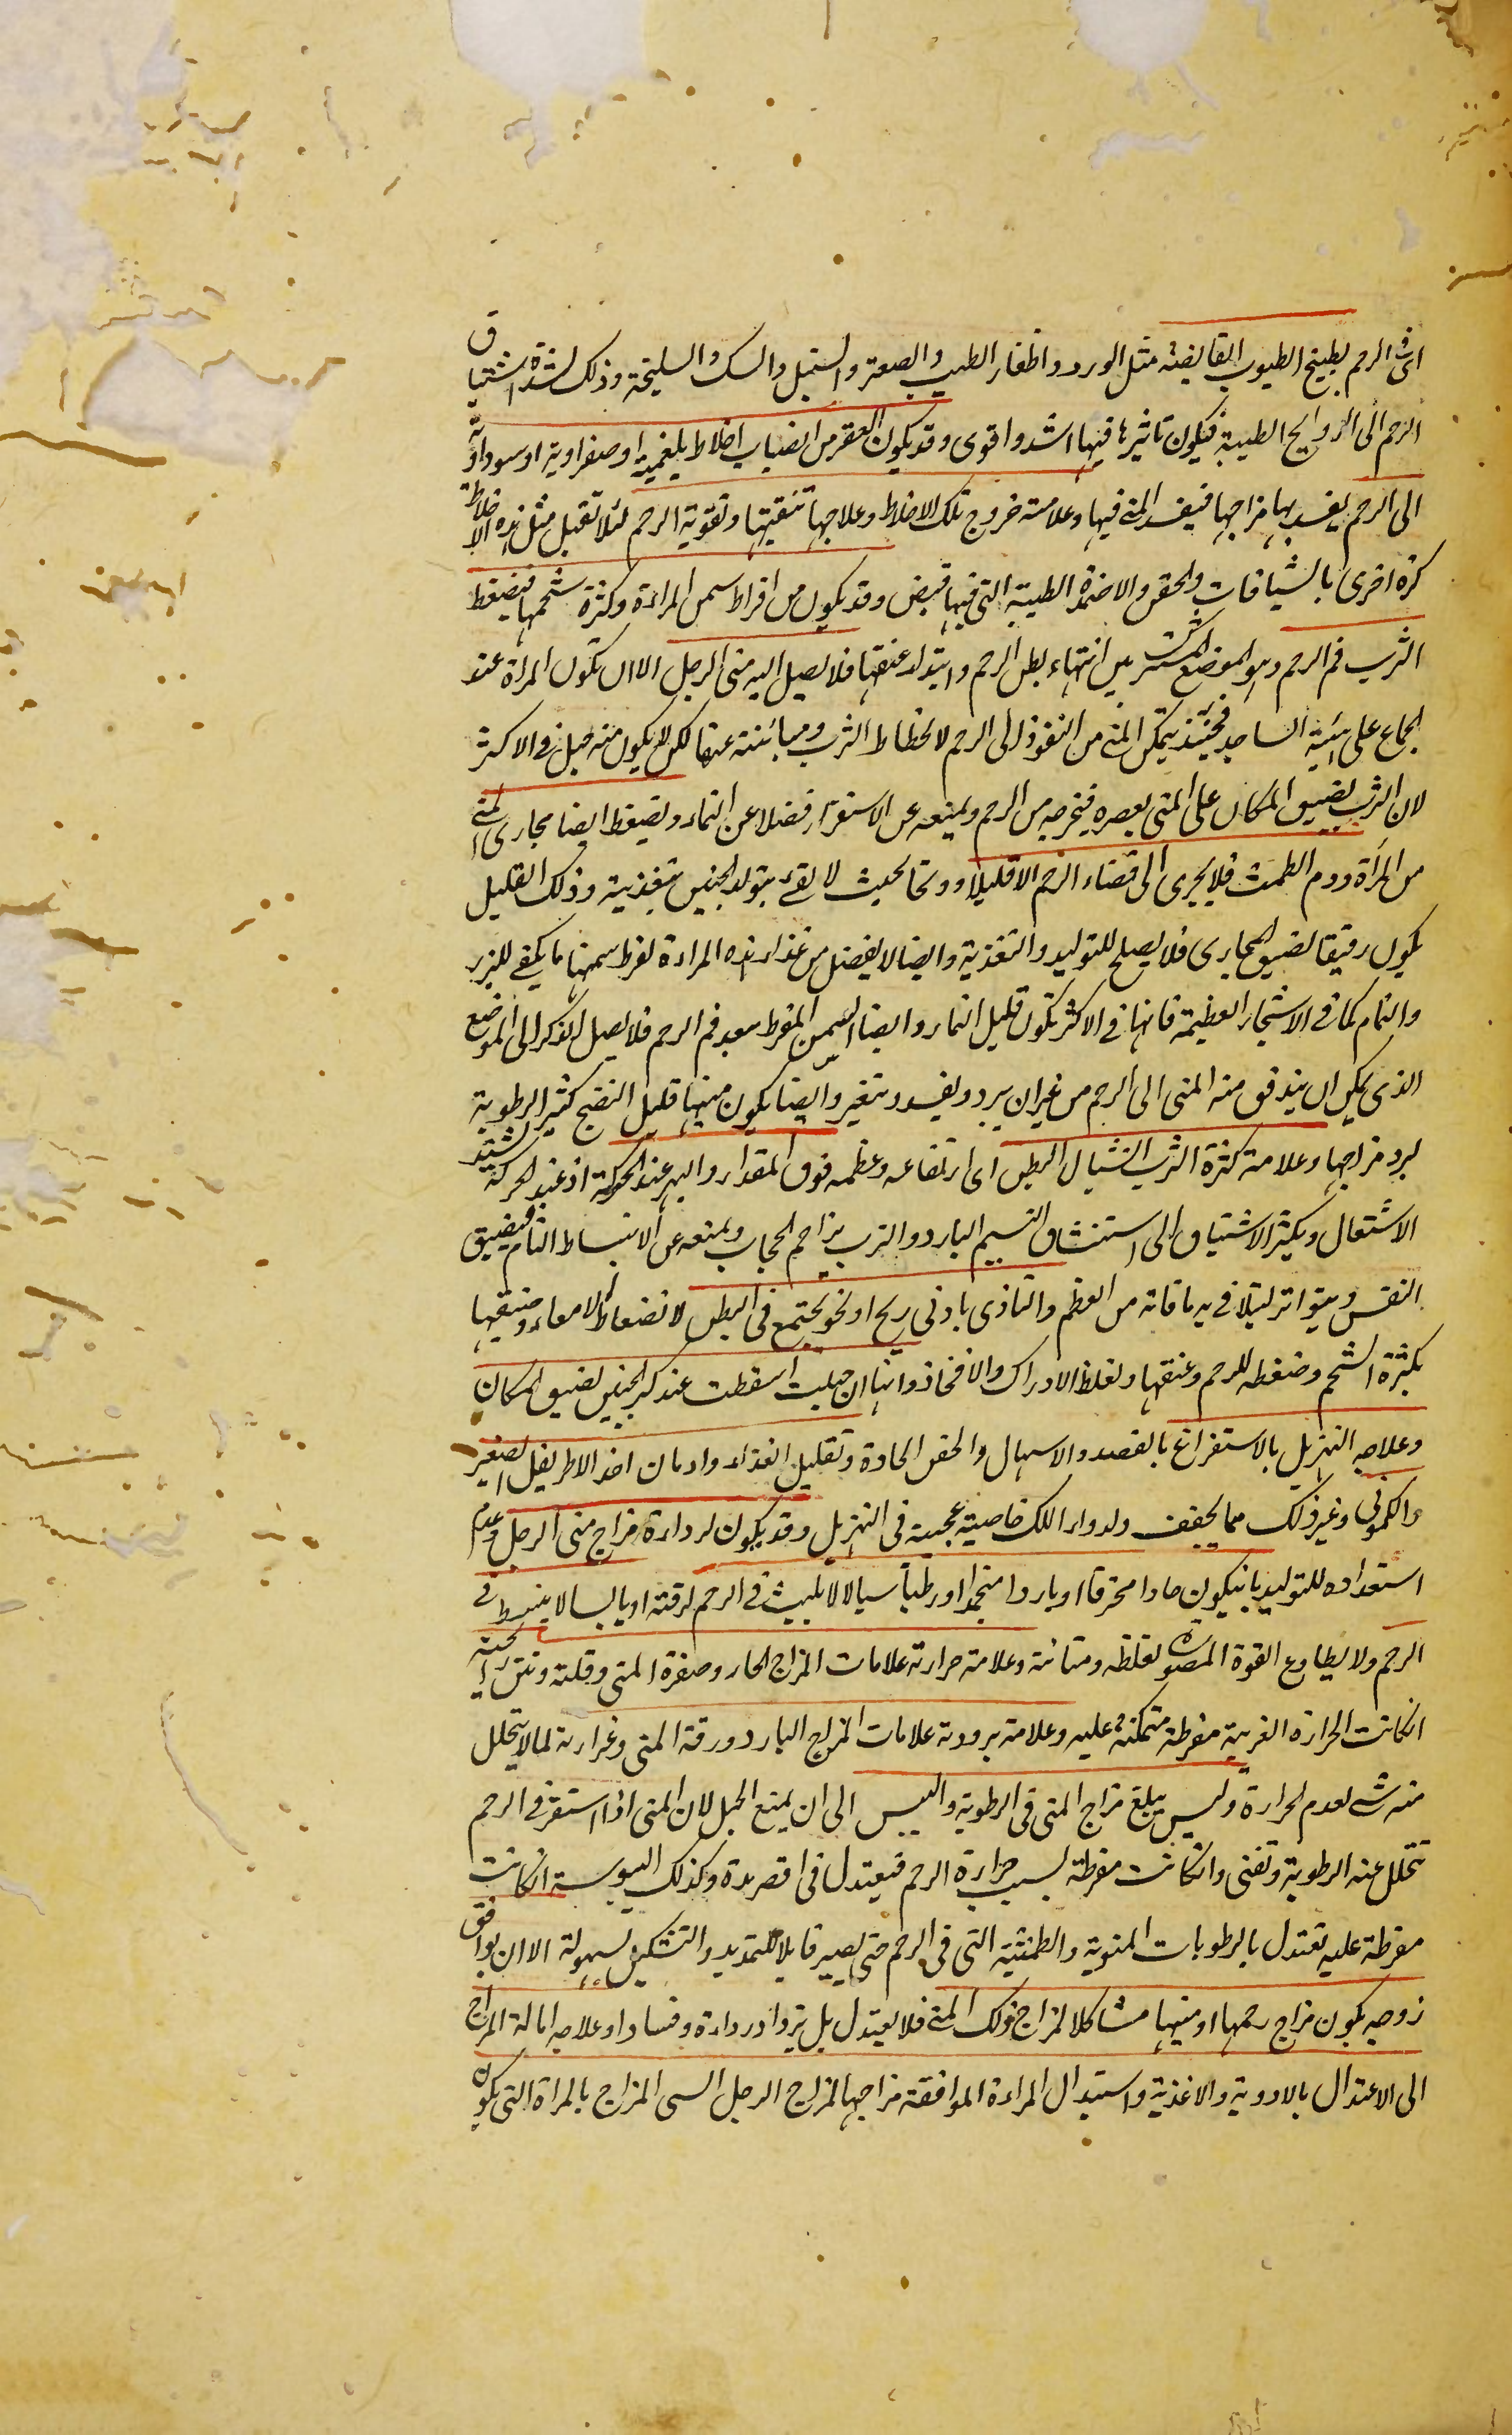 اى فى الرحم بطبيخ الطيوب القابضة مثل الورد واظفار الطيب والصعتر والسنبل والسك والسليخة وذلك لشدة اشتياق
الرحم الى الروايح الطيبة فيكون تاثيرها فيها اشد واقوى وقد يكون العقر من انصباب اخلاط بلغمية او صفراوية او سوداوية
الى الرحم يفسد بها مزاجها فيفسد المنى فيها وعلامته خروج تلك الاخلاط وعلاجها تنقيتها وتقوية الرحم لئلا تقبل مثل هذه الاخلاط
كرة اخرى بالشيافات والحقن والاضمدة الطيبة التى فيها قبض وقد يكون من افراط سمن المراءة وكثرة شحمها فيضغط
الثرب فم الرحم وهو الموضع المشترك بين انتهاء بطن الرحم وابتداء عنقها فلا يصل اليه منى الرجل الا ان تكون المراة عند
الجماع على هيئة الساجد فحينئذ يتمكن المنى من النفوذ الى الرحم لانحطاط الثرب ومباينته عنها لكن لا يكون منه حبل فى الاكثر
لان الثرب بضيق المكان على المنى يعصره فيخرجه من الرحم ويمنعه عن الاستقرار فضلا عن النماء ويضغط ايضا مجارى المنى
من المراة ودم الطمث فلا يجرى الى فضاء الرحم الا قليلا وتحا بحيث لا يفى بتولد الجنين بتغذيته وذلك القليل
يكون رقيقا لضيق المجارى فلا يصلح للتوليد والتغذية وايضا لا يفضل من غذاء هذه المراءة لفرط سمنها ما يكفى للبزر
والنماء كما فى الاشجار العظيمة فانها فى الاكثر تكون قليل الثمار وايضا السمن المفرط يبعد فم الرحم فلا يصل الذكر الى الموضع
الذى يمكن ان يندفق منه المنى الى الرحم من غير ان يبرد ويفسد ويتغير وايضا يكون منيها قليل النضج كثير الرطوبة
لبرد مزاجها وعلامة كثرة الثرب انشيال البطن اى ارتفاعه وعظمه فوق المقدار والبهر عند الحركة اذ عند الحركة يشتد
الاشتعال ويكثر الاشتياق الى استنشاق النسيم البارد والثرب يزاحم الحجاب ويمنعه عن الانبساط التام فيضيق
النفس ويتواتر ليتلافى به ما فاته من العظم والتاذى بادنى ريح او نجو يجتمع فى البطن لانضغاط الامعاء وضيقها
بكثرة الشحم وضغطه للرحم وعنقها ولغلظ الاوراك والافخاذ وانها ان حبلت اسقطت عند كبر الجنين لضيق المكان
وعلاجه التهزيل بالاستفراغ بالفصد والاسهال والحقن الحادة وتقليل الغذاء وادمان اخذ الاطريفل الصغير
والكمونى وغير ذلك مما يجفف ولدواء اللك خاصية عجيبة فى التهزيل وقد يكون لرداءة مزاج منى الرجل وعدم
استعداده للتوليد بان يكون حادا محترقا او باردا منجمدا او رطبا سيالا لا يلبث فى الرحم لرقته او يابسا لا ينبسط فى
الرحم ولا يطاوع القوة المصورة لغلظه ومتانته وعلامة حرارته علامات المزاج الحار وصفرة المنى وقلته ونتن رائحته
انكانت الحرارة الغريبة مفرطة متمكنة عليه وعلامة برودته علامات المزاج البارد ورقة المنى وغزارته لما لا يتحلل
منه شى لعدم الحرارة وليس يبلغ مزاج المنى فى الرطوبة واليبس الى ان يمنع الحبل لان المنى اذا استقر فى الرحم
تتحلل عنه الرطوبة وتفنى وانكانت مفرطة بسبب حرارة الرحم فيعتدل فى اقصر مدة وكذلك اليبوسة انكانت
مفرطة عليه تعتدل بالرطوبات المنوية والطمثية التى فى الرحم حتى يصير قابلا للتمديد والتشكيل بسهولة الا ان يوافق
زوجه بكون مزاج رحمها او منيها مشاكلا لمزاج ذلك المنى فلا يعتدل بل يزداد رداءة وفسادا وعلاجه امالة المزاج
الى الاعتدال بالادوية والاغذية واستبدال المراءة الموافقة مزاجها لمزاج الرجل السى المزاج بالمراة التى يكون